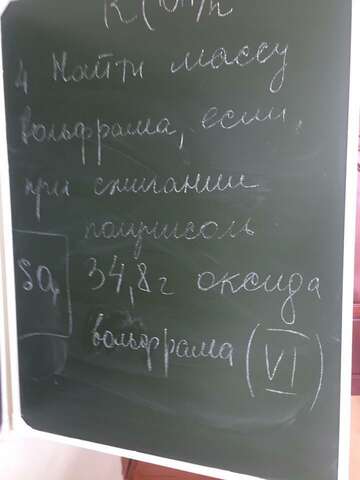 K(OH)n
4 Найти массу
вольфрама, если,
при сжигании
получисоль
SO4 34,8г оксида
вольфрама (VI)